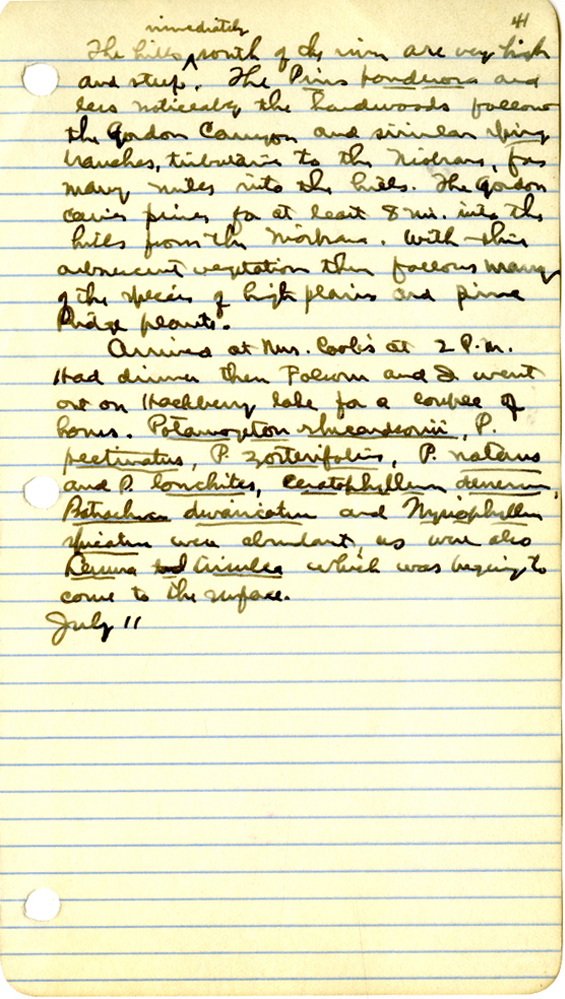 41
immediately
The hills ^ south of the river are very high
and steep. The Pinus ponderosa and
less noticeably the hardwoods follow
the Gordon Canyon and similar spring
branches, tributaries to the Niobrara, for
many miles into the hills. The Gordon
carries pines for at least 8 mi. into the
hills from the Niobrara. With this
arborescent vegetation then follows many
of the species of high plains and pine
Ridge plants.
Arrived at Mrs. Cook's at 2 P.M.
Had dinner then Folsom and I went
out on Hackberry lake for a couple of
hours. Potamogeton richardsonii, P.
pectinatus, P. zosterifolius, P. natans
and P. lonchites, Ceratophyllum demersum,
Batrachium divaricatum and Myriophyllum
spicatum were abundant, as were also
Lemna trisulca which was begining to
come to the surface.
July 11